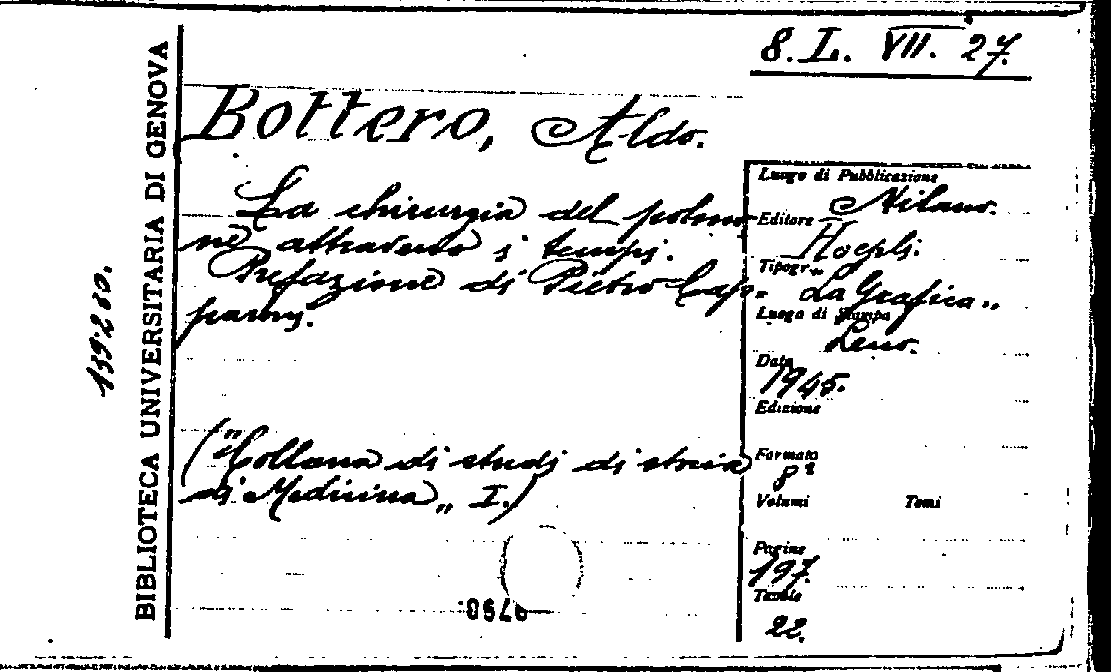 8. L. VII. 27.
BIBLIOTECA UNIVERSITARIA DI GENOVA
139280.
Bottero, Aldo.
La chirurgia del polmo-
ne attraverso i tempi.
Prefazione di Pietro Cap-
paroni.
("Collana di studi di storia
di Medicina„ I.)
Luogo di Pubblicazione
Milano.
Editore
Hoepli.
Tipogr.
La Grafica„
Luogo di Stampa
Leno.
Data
1945.
Edizione
Formato
8º
Volumi Tomi
Pagine
197.
Tavole
22.